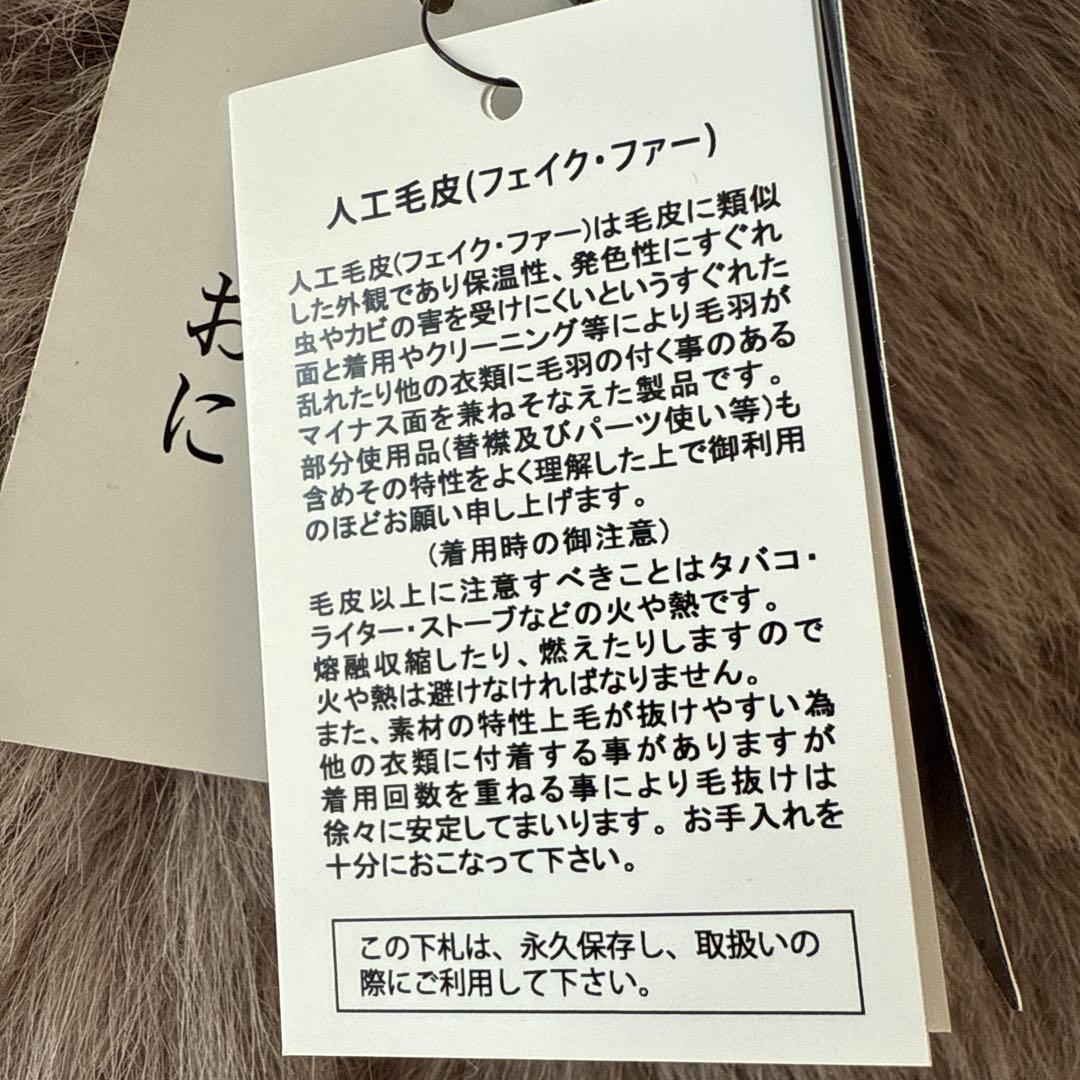 人工毛皮(フェイク・ファー)
人工毛皮(フェイク・ファー)は毛皮に類似
した外観であり保温性、発色性にすぐれ
虫やカビの害を受けにくいというすぐれた
面と着用やクリーニング等により毛羽が
乱れたり他の衣類に毛羽の付く事のある
マイナス面を兼ねそなえた製品です。
部分使用品(替襟及びパーツ使い等)も
含めその特性をよく理解した上で御利用
のほどお願い申し上げます。
(着用時の御注意)
毛皮以上に注意すべきことはタバコ・
ライター・ストーブなどの火や熱です。
熔融収縮したり、燃えたりしますので
火や熱は避けなければなりません。
また、素材の特性上毛が抜けやすい為
他の衣類に付着する事がありますが
着用回数を重ねる事により毛抜けは
徐々に安定してまいります。お手入れを
十分におこなって下さい。
この下札は、永久保存し、取扱いの
際にご利用して下さい。
お
に